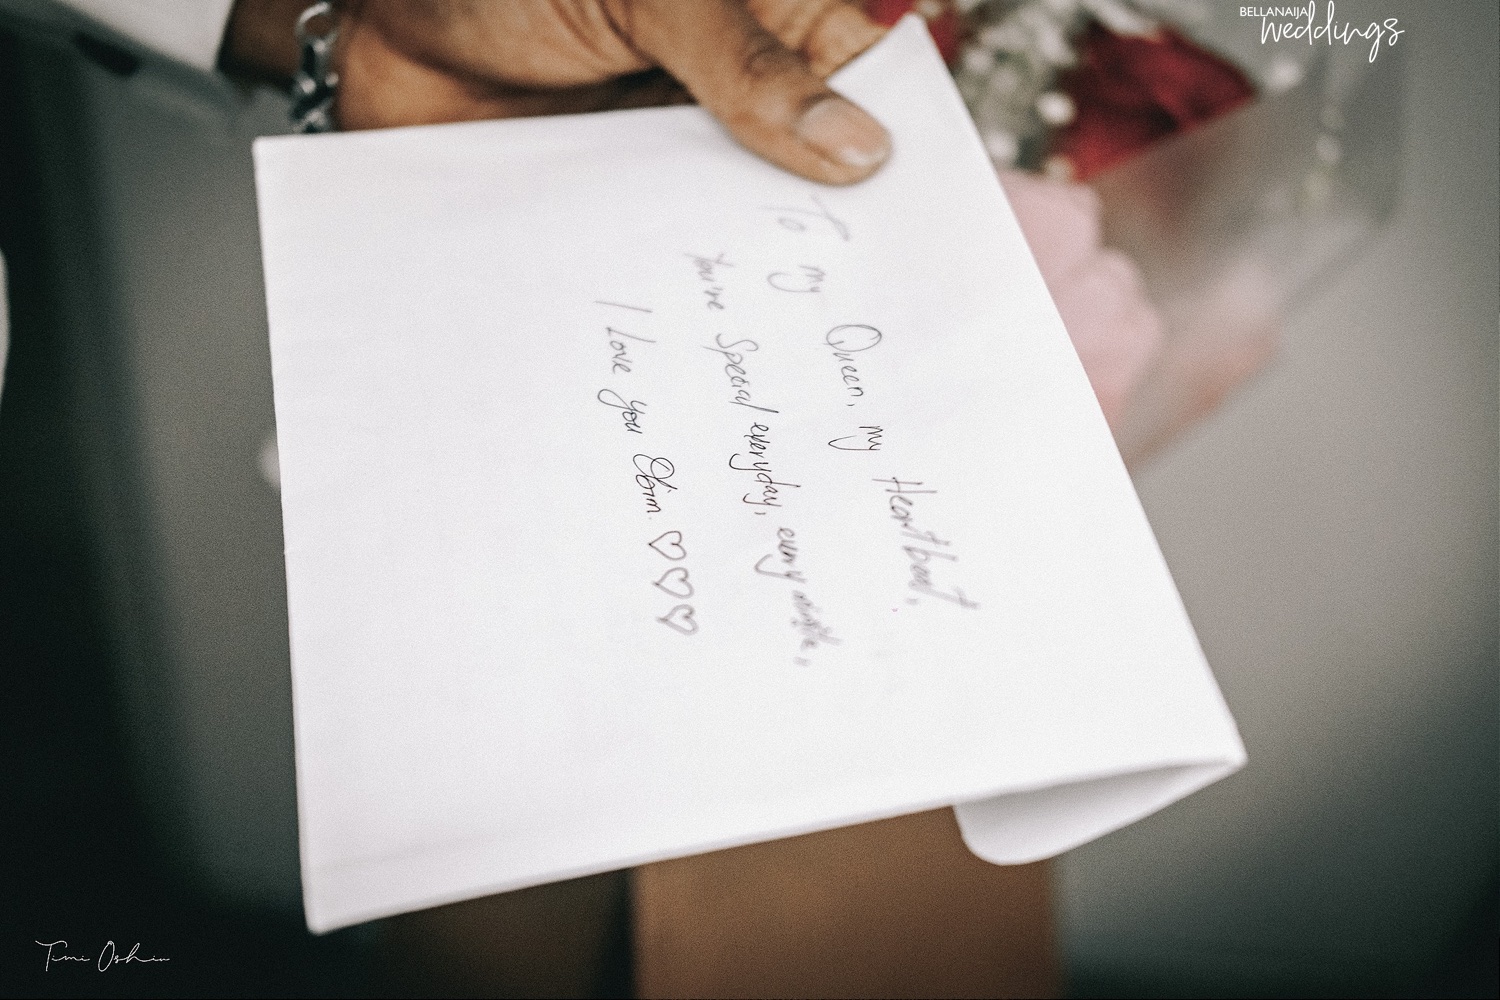 BELLANAIJA
weddings
To my Queen, my Heartbeat,
You're Special everyday, every
I Love you Obim. ♡♡♡
Timi Oshin